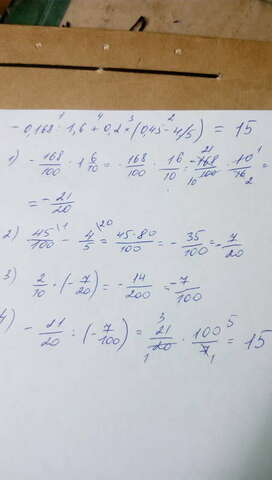 - 0,168 : 1,6 + 0,2 × (0,45 - 4/5) = 15
1) - 168/100 · 1 6/10 = - 168/100 · 16/10 = - 168/100 · 10/16 =
= - 21/20
2) 45/100 - 4/5 = 45-80/100 = - 35/100 = - 7/20
3) 2/10 · (- 7/20) = - 14/200 = - 7/100
4) - 21/20 : (- 7/100) = 21/20 · 100/7 = 15